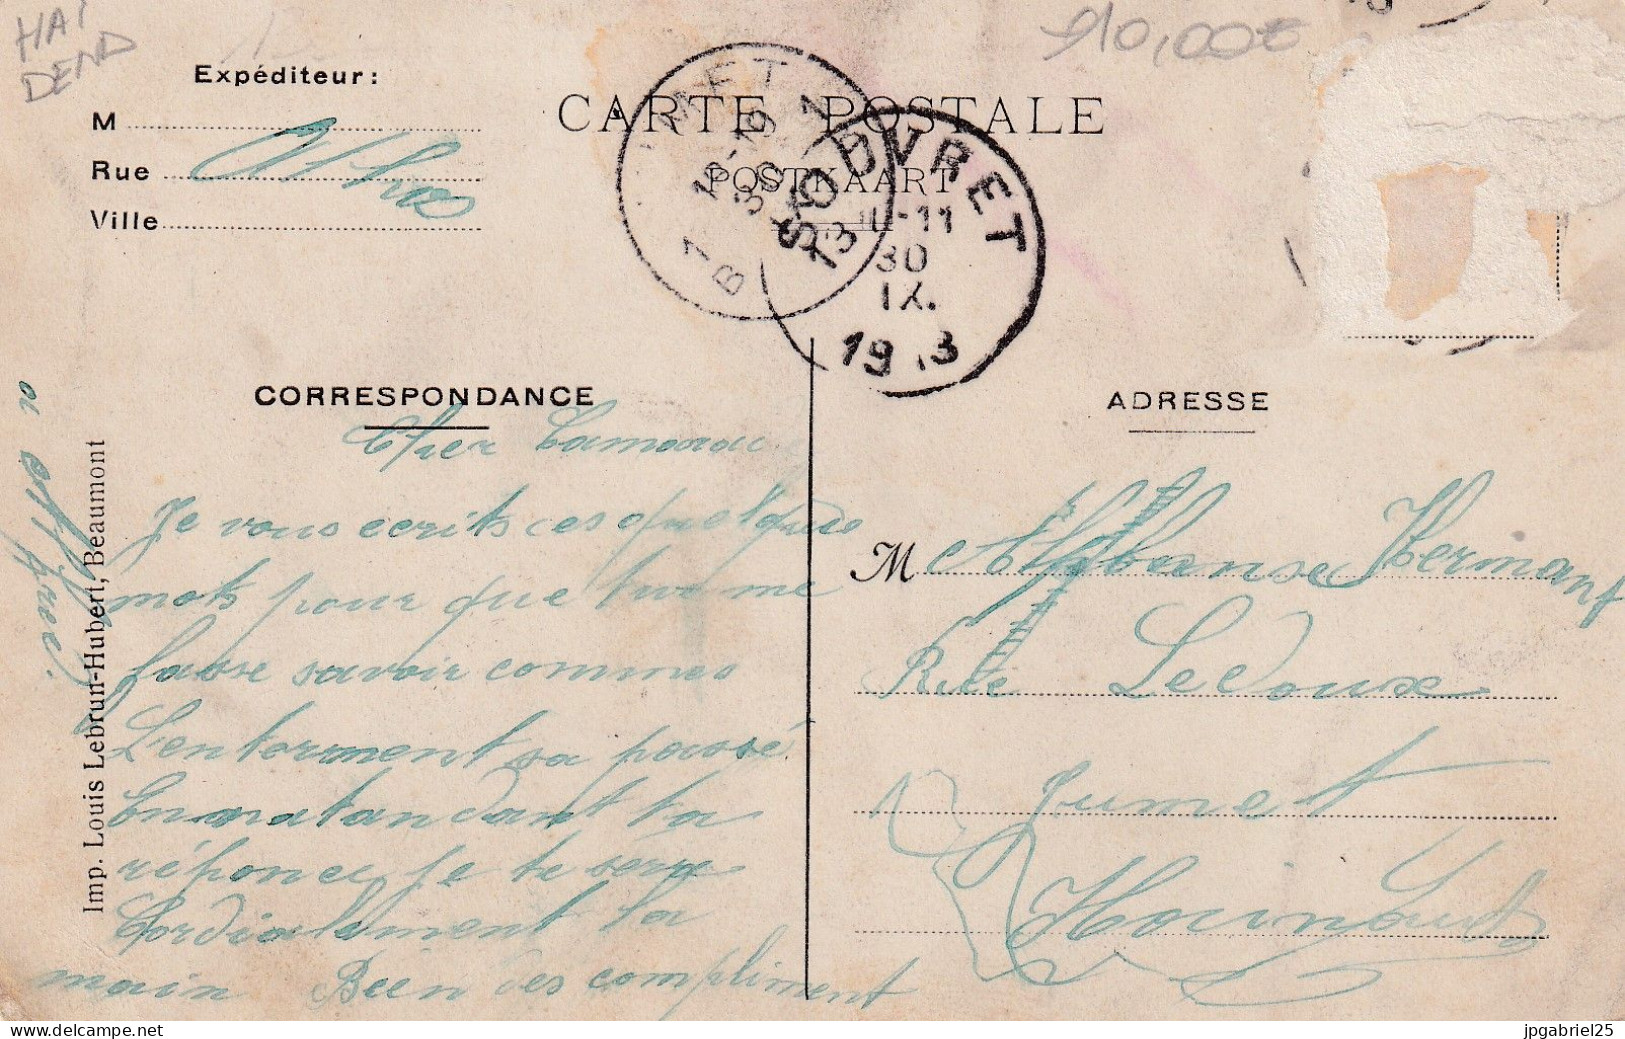 HAI
DEND
910,00€
Expéditeur:
M
Rue
Ville
CARTE POSTALE
POSTKAART
SOUVRET
30
IX.
CORRESPONDANCE
ADRESSE
Cher Camarade
Je vous ecrits ces quelques
mots pour que tu me
fasse savoir commes
L'enterment sa passé
En natandant ta
réponce je te sera
Cordialement la
main Bien des compliment
M Alphonse Hermant
Rue Ledoux
Jumet
Hainaut
Imp. Louis Lebrun-Hubert, Beaumont
delcampe.net
jpgabriel25